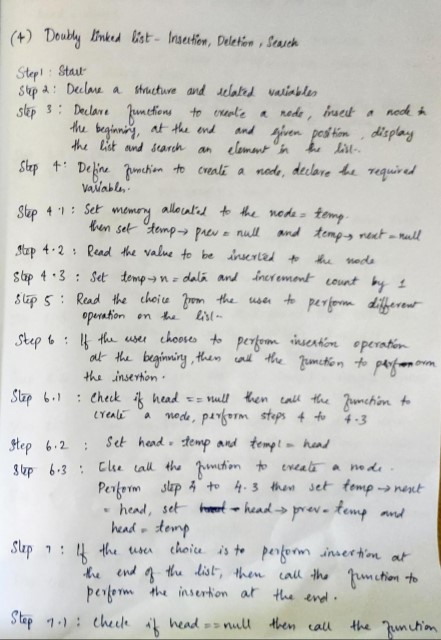 (4) Doubly linked list - Insertion, Deletion, Search
Step1 : Start
Step 2 : Declare a structure and related variables
Step 3 : Declare functions to create a node, insert a node in
the beginning, at the end and given position, display
the list and search an element in the list.
Step 4 : Define function to create a node, declare the required
variables.
Step 4.1 : Set memory allocated to the node = temp.
then set temp→prev = null and temp→next = null
Step 4.2 : Read the value to be inserted to the node
Step 4.3 : Set temp→n = data and increment count by 1
Step 5 : Read the choice from the user to perform different
operation on the list.
Step 6 : If the user chooses to perform insertion operation
at the beginning, then call the function to perform
the insertion.
Step 6.1 : Check if head == null then call the function to
create a node, perform steps 4 to 4.3
Step 6.2 : Set head = temp and temp1 = head
Step 6.3 : Else call the function to create a node.
Perform step 4 to 4.3 then set temp→next
= head, set head→prev = temp and
head = temp
Step 7 : If the user choice is to perform insertion at
the end of the list, then call the function to
perform the insertion at the end.
Step 7.1 : Check if head == null then call the function